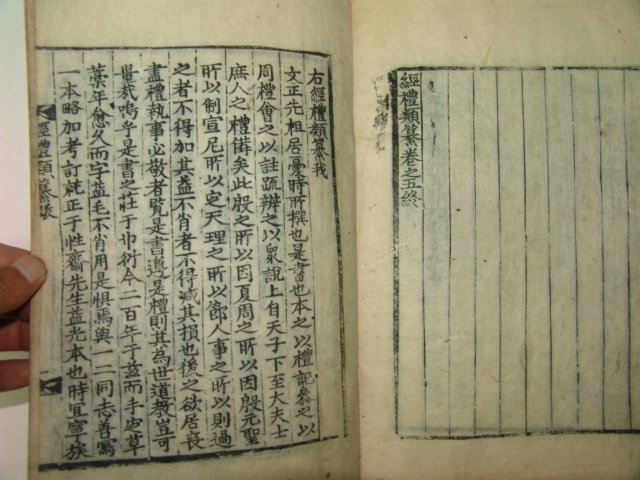 經禮類纂卷之五終
右經禮類纂我
文正先祖居憂時所撰也是書也本之以禮記叅之以
周禮會之以註疏辨之以衆說上自天子下至大夫士
庶人之禮備矣此殷之所以因夏周之所以因殷元聖
所以制宣尼所以定天理之所以節人事之所以則過
之者不得加其益不肖者不得減其損也後之欲居喪
盡禮執事必敬者覽是書遵是禮則其為世道教豈可
量哉嗚乎是書之莊于巾衍今二百年于玆而手寫草
藁年愈久而字益毛不肖用是惧焉與一二同志善寫
一本略加考訂就正于性齋先生益光本也時宜寧族
經禮類纂跋